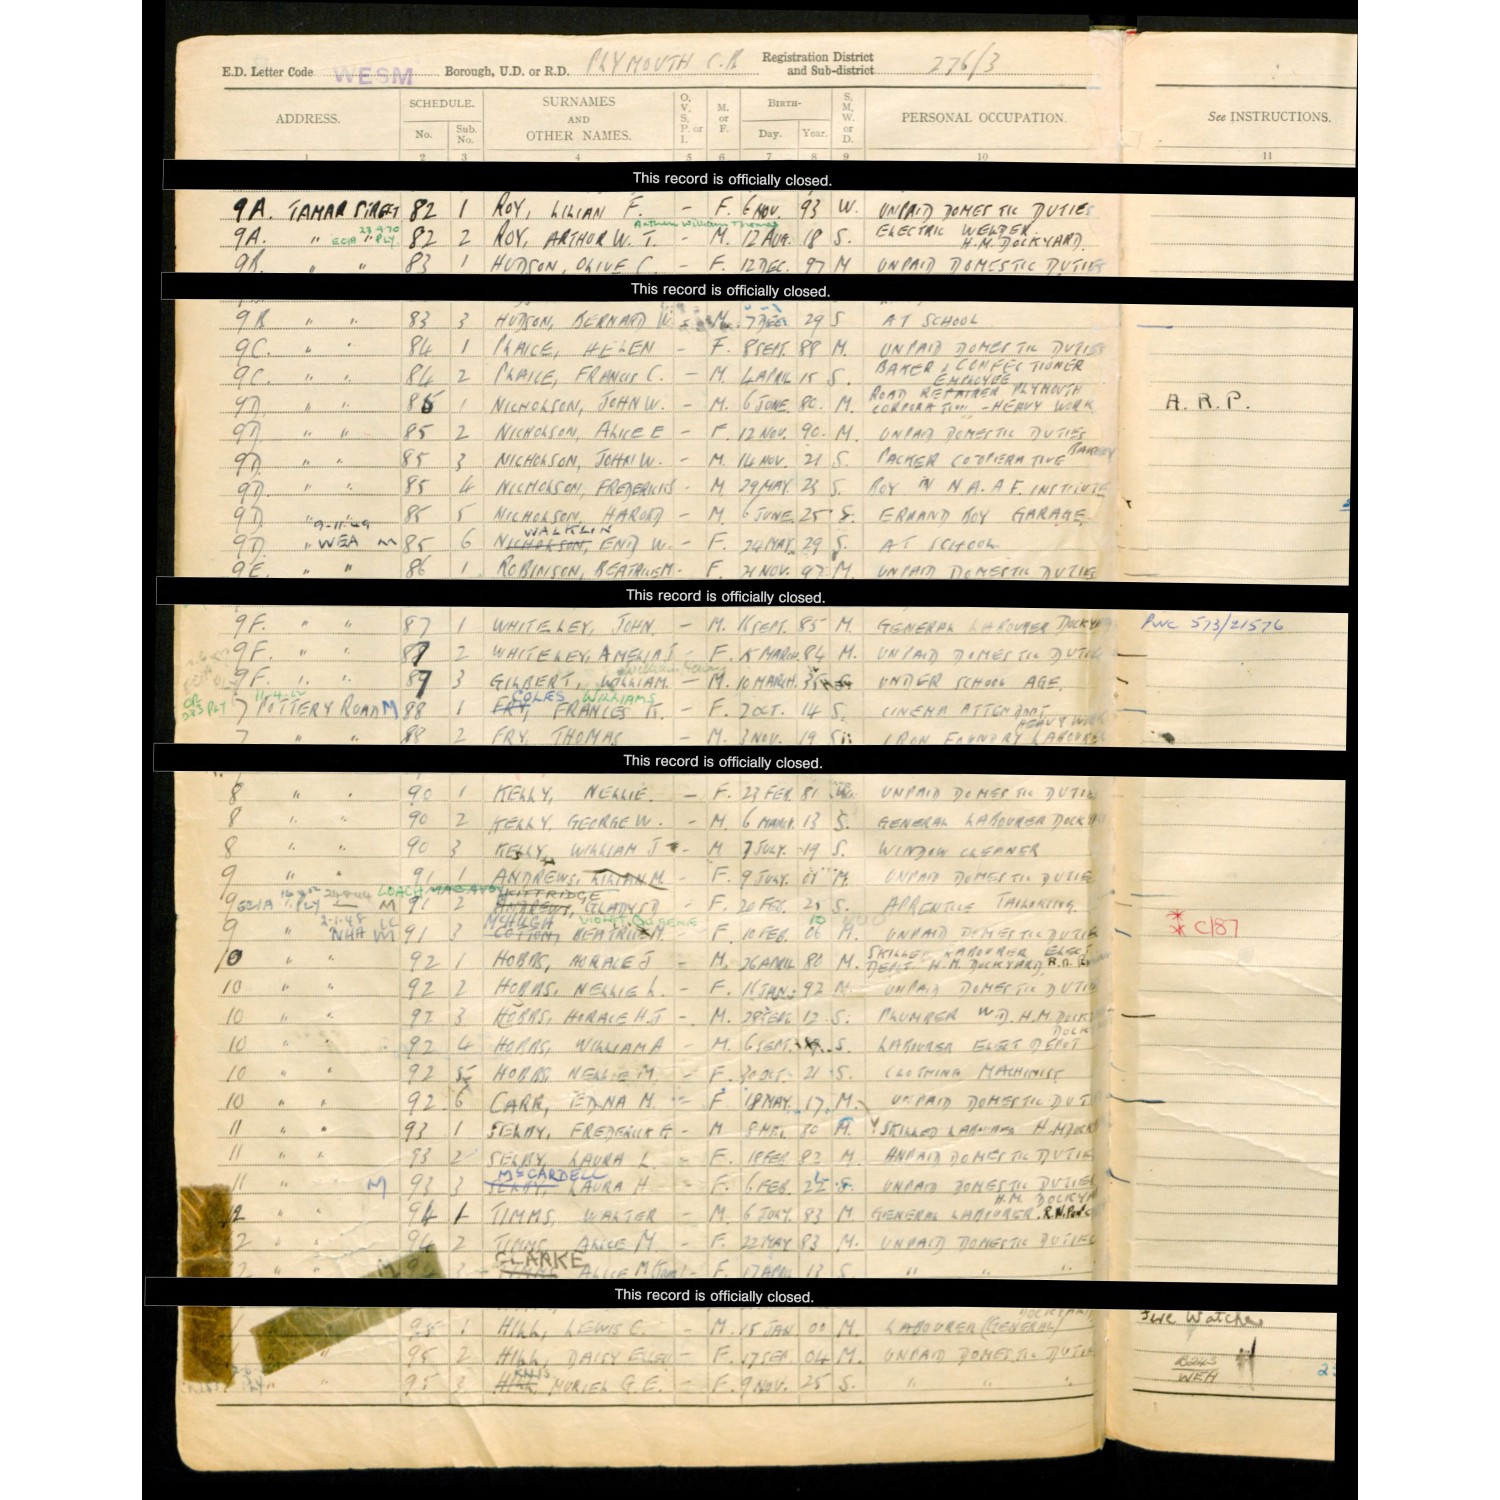 E.D. Letter Code WESM Borough, U.D. or R.D. PLYMOUTH C.B. Registration District and Sub-district 276/3
ADDRESS. SCHEDULE. No. Sub. No. SURNAMES AND OTHER NAMES. O. V. S. P. or I. M. or F. BIRTH- Day. Year. S. M. W. or D. PERSONAL OCCUPATION. See INSTRUCTIONS.
1 2 3 4 5 6 7 8 9 10 11
This record is officially closed.
9A. TAMAR STREET 82 1 ROY, LILIAN F. - F. 6 NOV. 93 W. UNPAID DOMESTIC DUTIES
Arthur William Thomas
9A. " " 82 2 ROY, ARTHUR W. T. - M. 12 AUG. 18 S. ELECTRIC WELDER. H.M. DOCKYARD.
9B. " " 83 1 HUDSON, OLIVE C. - F. 12 DEC. 97 M UNPAID DOMESTIC DUTIES
This record is officially closed.
9B " " 83 3 HUDSON, BERNARD W. - M. 7 DEC 29 S AT SCHOOL
9C. " " 84 1 PLAICE, HELEN - F. 8 SEPT. 88 M. UNPAID DOMESTIC DUTIES
9C. " " 84 2 PLAICE, FRANCIS C. - M. 4 APRIL 15 S. BAKER & CONFECTIONER EMPLOYEE
9D. " " 85 1 NICHOLSON, JOHN W. - M. 6 JUNE. 80. M. ROAD REPAIRER PLYMOUTH CORPORATION - HEAVY WORK A.R.P.
9D. " " 85 2 NICHOLSON, ALICE E - F. 12 NOV. 90. M. UNPAID DOMESTIC DUTIES
9D. " " 85 3 NICHOLSON, JOHN W. - M. 14 NOV. 21 S. PACKER CO-OPERATIVE BAKERY
9D. " " 85 4 NICHOLSON, FREDERICK - M 29 MAY. 23 S. BOY IN N.A.A.F. INSTITUTE
9D. " " 85 5 NICHOLSON, HAROLD - M. 6 JUNE. 25 S. ERRAND BOY GARAGE
9-11-49 WALKLIN
9D. " WEA M 85 6 NICHOLSON, ENID W. - F. 24 MAY. 29 S. AT SCHOOL
9E. " " 86 1 ROBINSON, BEATRICE M. - F. 21 NOV. 97 M. UNPAID DOMESTIC DUTIES
This record is officially closed.
9F. " " 87 1 WHITELEY, JOHN. - M. 16 SEPT. 85 M. GENERAL LABOURER DOCKYARD RNC 573/21576
9F. " " 87 2 WHITELEY, AMELIA J - F. 15 MARCH. 84 M. UNPAID DOMESTIC DUTIES
9F. " " 87 3 GILBERT, WILLIAM. - M. 10 MARCH. 35 UNDER SCHOOL AGE.
11-4-62 COLES WILLIAMS
7 POTTERY ROAD M 88 1 FRY, FRANCES K. - F. 2 OCT. 14 S. CINEMA ATTENDANT
7 " " 88 2 FRY, THOMAS - M. 3 NOV. 19 S. IRON FOUNDRY LABOURER HEAVY WORK
This record is officially closed.
8 " " 90 1 KELLY, NELLIE. - F. 23 FEB. 81 UNPAID DOMESTIC DUTIES
8 " " 90 2 KELLY, GEORGE W. - M. 6 MARCH. 13 S. GENERAL LABOURER DOCKYARD
8 " " 90 3 KELLY, WILLIAM J - M 7 JULY. 19 S. WINDOW CLEANER
9 " " 91 1 ANDREWS, LILIAN M. - F. 9 JULY. 01 M. UNPAID DOMESTIC DUTIES
LOACH MACAVOY KITTRIDGE
9 " PLY M 91 2 ANDREWS, GLADYS D - F. 20 FEB. 23 S. APRENTICE TAILORING.
2-1-48 LC McHUGH VIOLET EUGENIE 10
9 " NHA M 91 3 COTTON, BEATRICE M. F. 10 FEB. 06 M. UNPAID DOMESTIC DUTIES C/87
10 " " 92 1 HOBBS, HORACE J - M. 26 APRIL 80 M. SKILLED LABOURER ELECT. DEPT. H.M. DOCKYARD.
10 " " 92 2 HOBBS, NELLIE L. - F. 16 JAN. 92 M. UNPAID DOMESTIC DUTIES
10 " " 92 3 HOBBS, HORACE H.J - M. 28 FEB. 12 S. PLUMBER W.D. H.M. DOCKYARD
10 " " 92 4 HOBBS, WILLIAM A - M. 6 SEPT. S. LABOURER ELECT DEPOT
10 " " 92 5 HOBBS, NELLIE M. - F. 30 OCT. 21 S. CLOTHING MACHINIST
10 " " 92 6 CARR, EDNA M. - F 18 MAY. 17 M. UNPAID DOMESTIC DUTIES
11 " " 93 1 SELBY, FREDERICK G - M 80 M. SKILLED LABOURER H.M. DOCKYARD
11 " " 93 2 SELBY, LAURA L. - F. 18 FEB 82 M. UNPAID DOMESTIC DUTIES
McCARDELL
11 " M 93 3 SELBY, LAURA H. - F. 6 FEB. 22 S. UNPAID DOMESTIC DUTIES
12 " " 94 1 TIMMS, WALTER - M. 6 JULY. 83 M GENERAL LABOURER. H.M. DOCKYARD
2 " " 94 2 TIMMS, ALICE M. - F. 22 MAY 83 M. UNPAID DOMESTIC DUTIES
CLARKE
2 " M 3 TIMMS, ALICE M - F. 17 APRIL 13 S. " " "
This record is officially closed.
95 1 HILL, LEWIS C. - M. 15 JAN 00 M. LABOURER (GENERAL) DOCKYARD Fire Watcher
95 2 HILL, DAISY ELLEN - F. 17 SEP. 04 M. UNPAID DOMESTIC DUTIES
95 3 HILL, MURIEL G.E. - F. 9 NOV. 25 S. " " " WEH